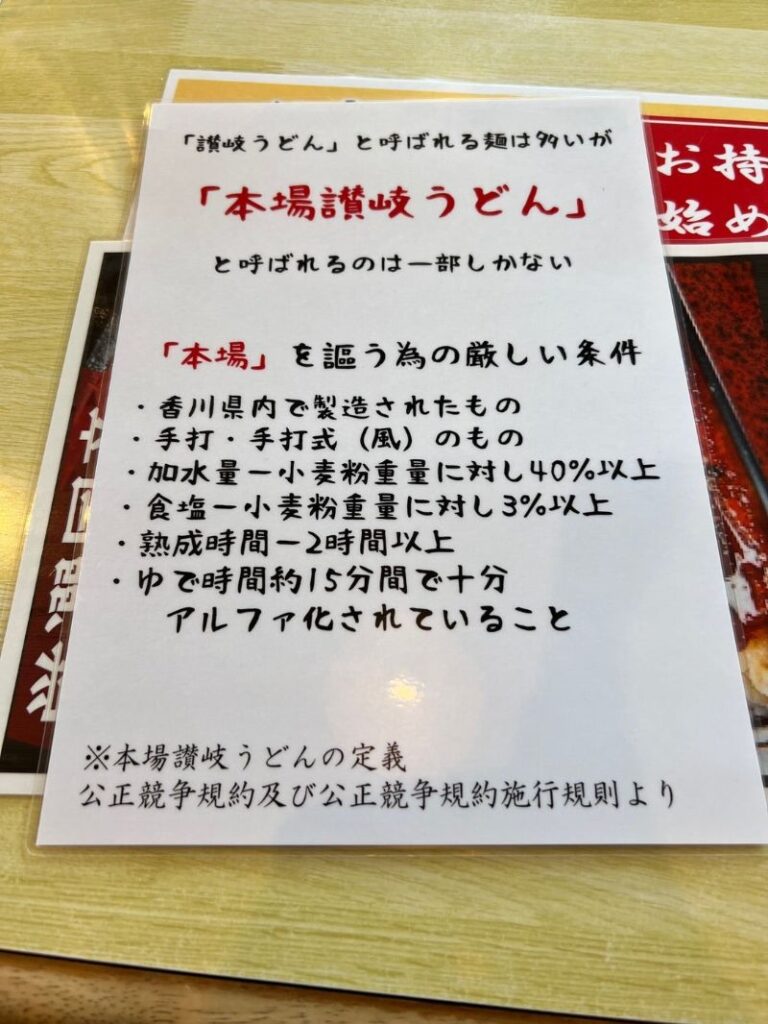 「讃岐うどん」と呼ばれる麺は多いが
「本場讃岐うどん」
と呼ばれるのは一部しかない
「本場」を謳う為の厳しい条件
・香川県内で製造されたもの
・手打・手打式(風)のもの
・加水量ー小麦粉重量に対し40%以上
・食塩ー小麦粉重量に対し3%以上
・熟成時間ー2時間以上
・ゆで時間約15分間で十分
アルファ化されていること
※本場讃岐うどんの定義
公正競争規約及び公正競争規約施行規則より
お持
始め